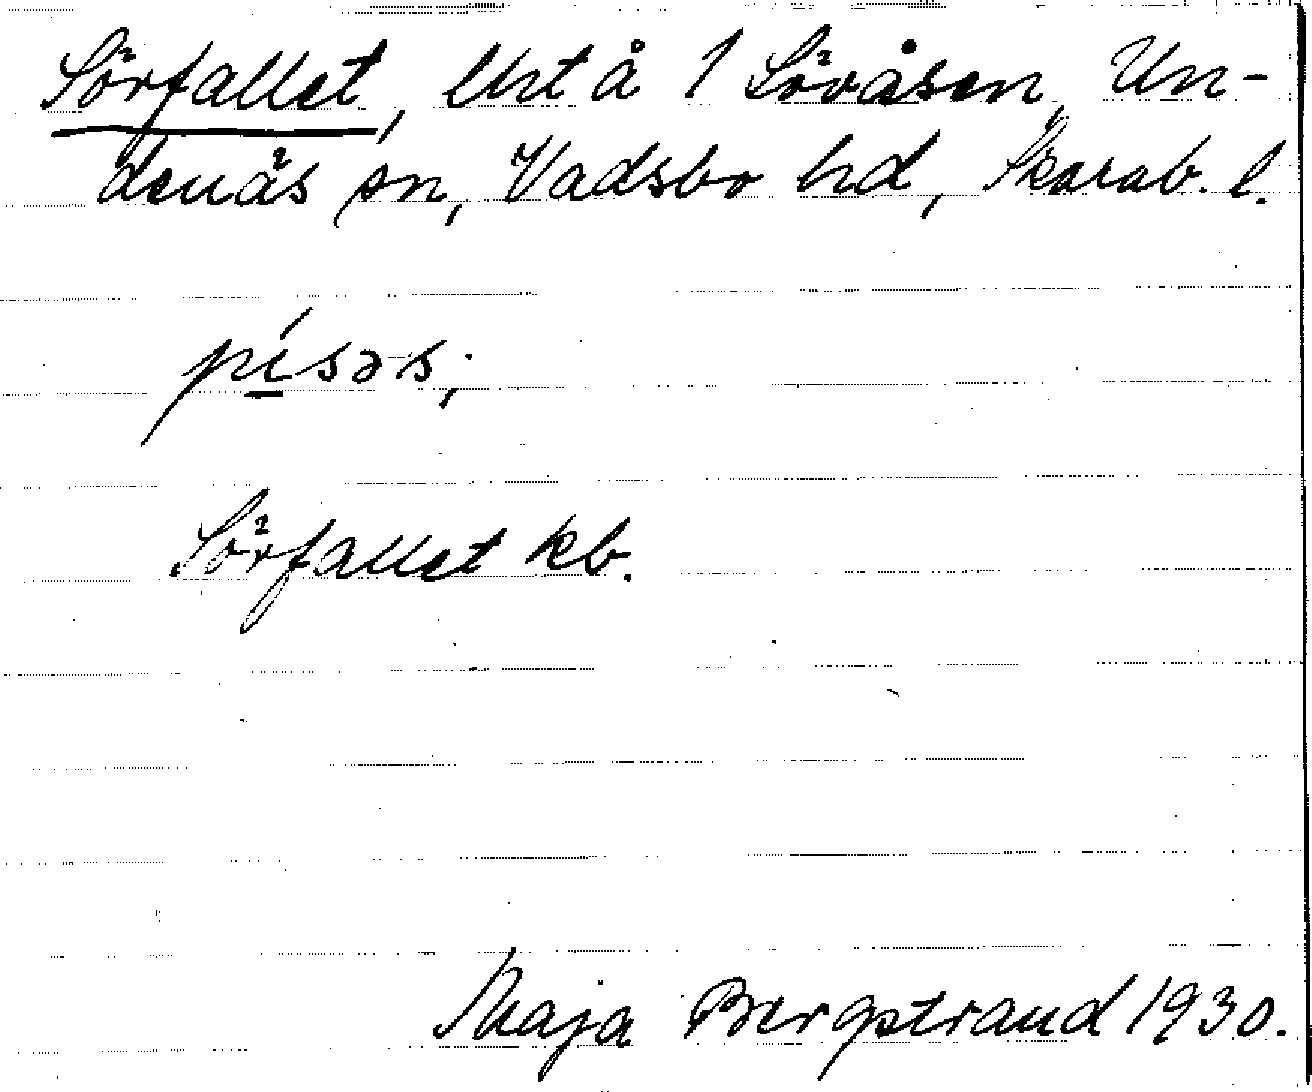 Sörfallet, lht å 1 Sövåsen, Un-
denäs sn, Vadsbo hd, Skarab. l.
pí̲səs;
Sörfallet kb.
Maja Bergstrand 1930.